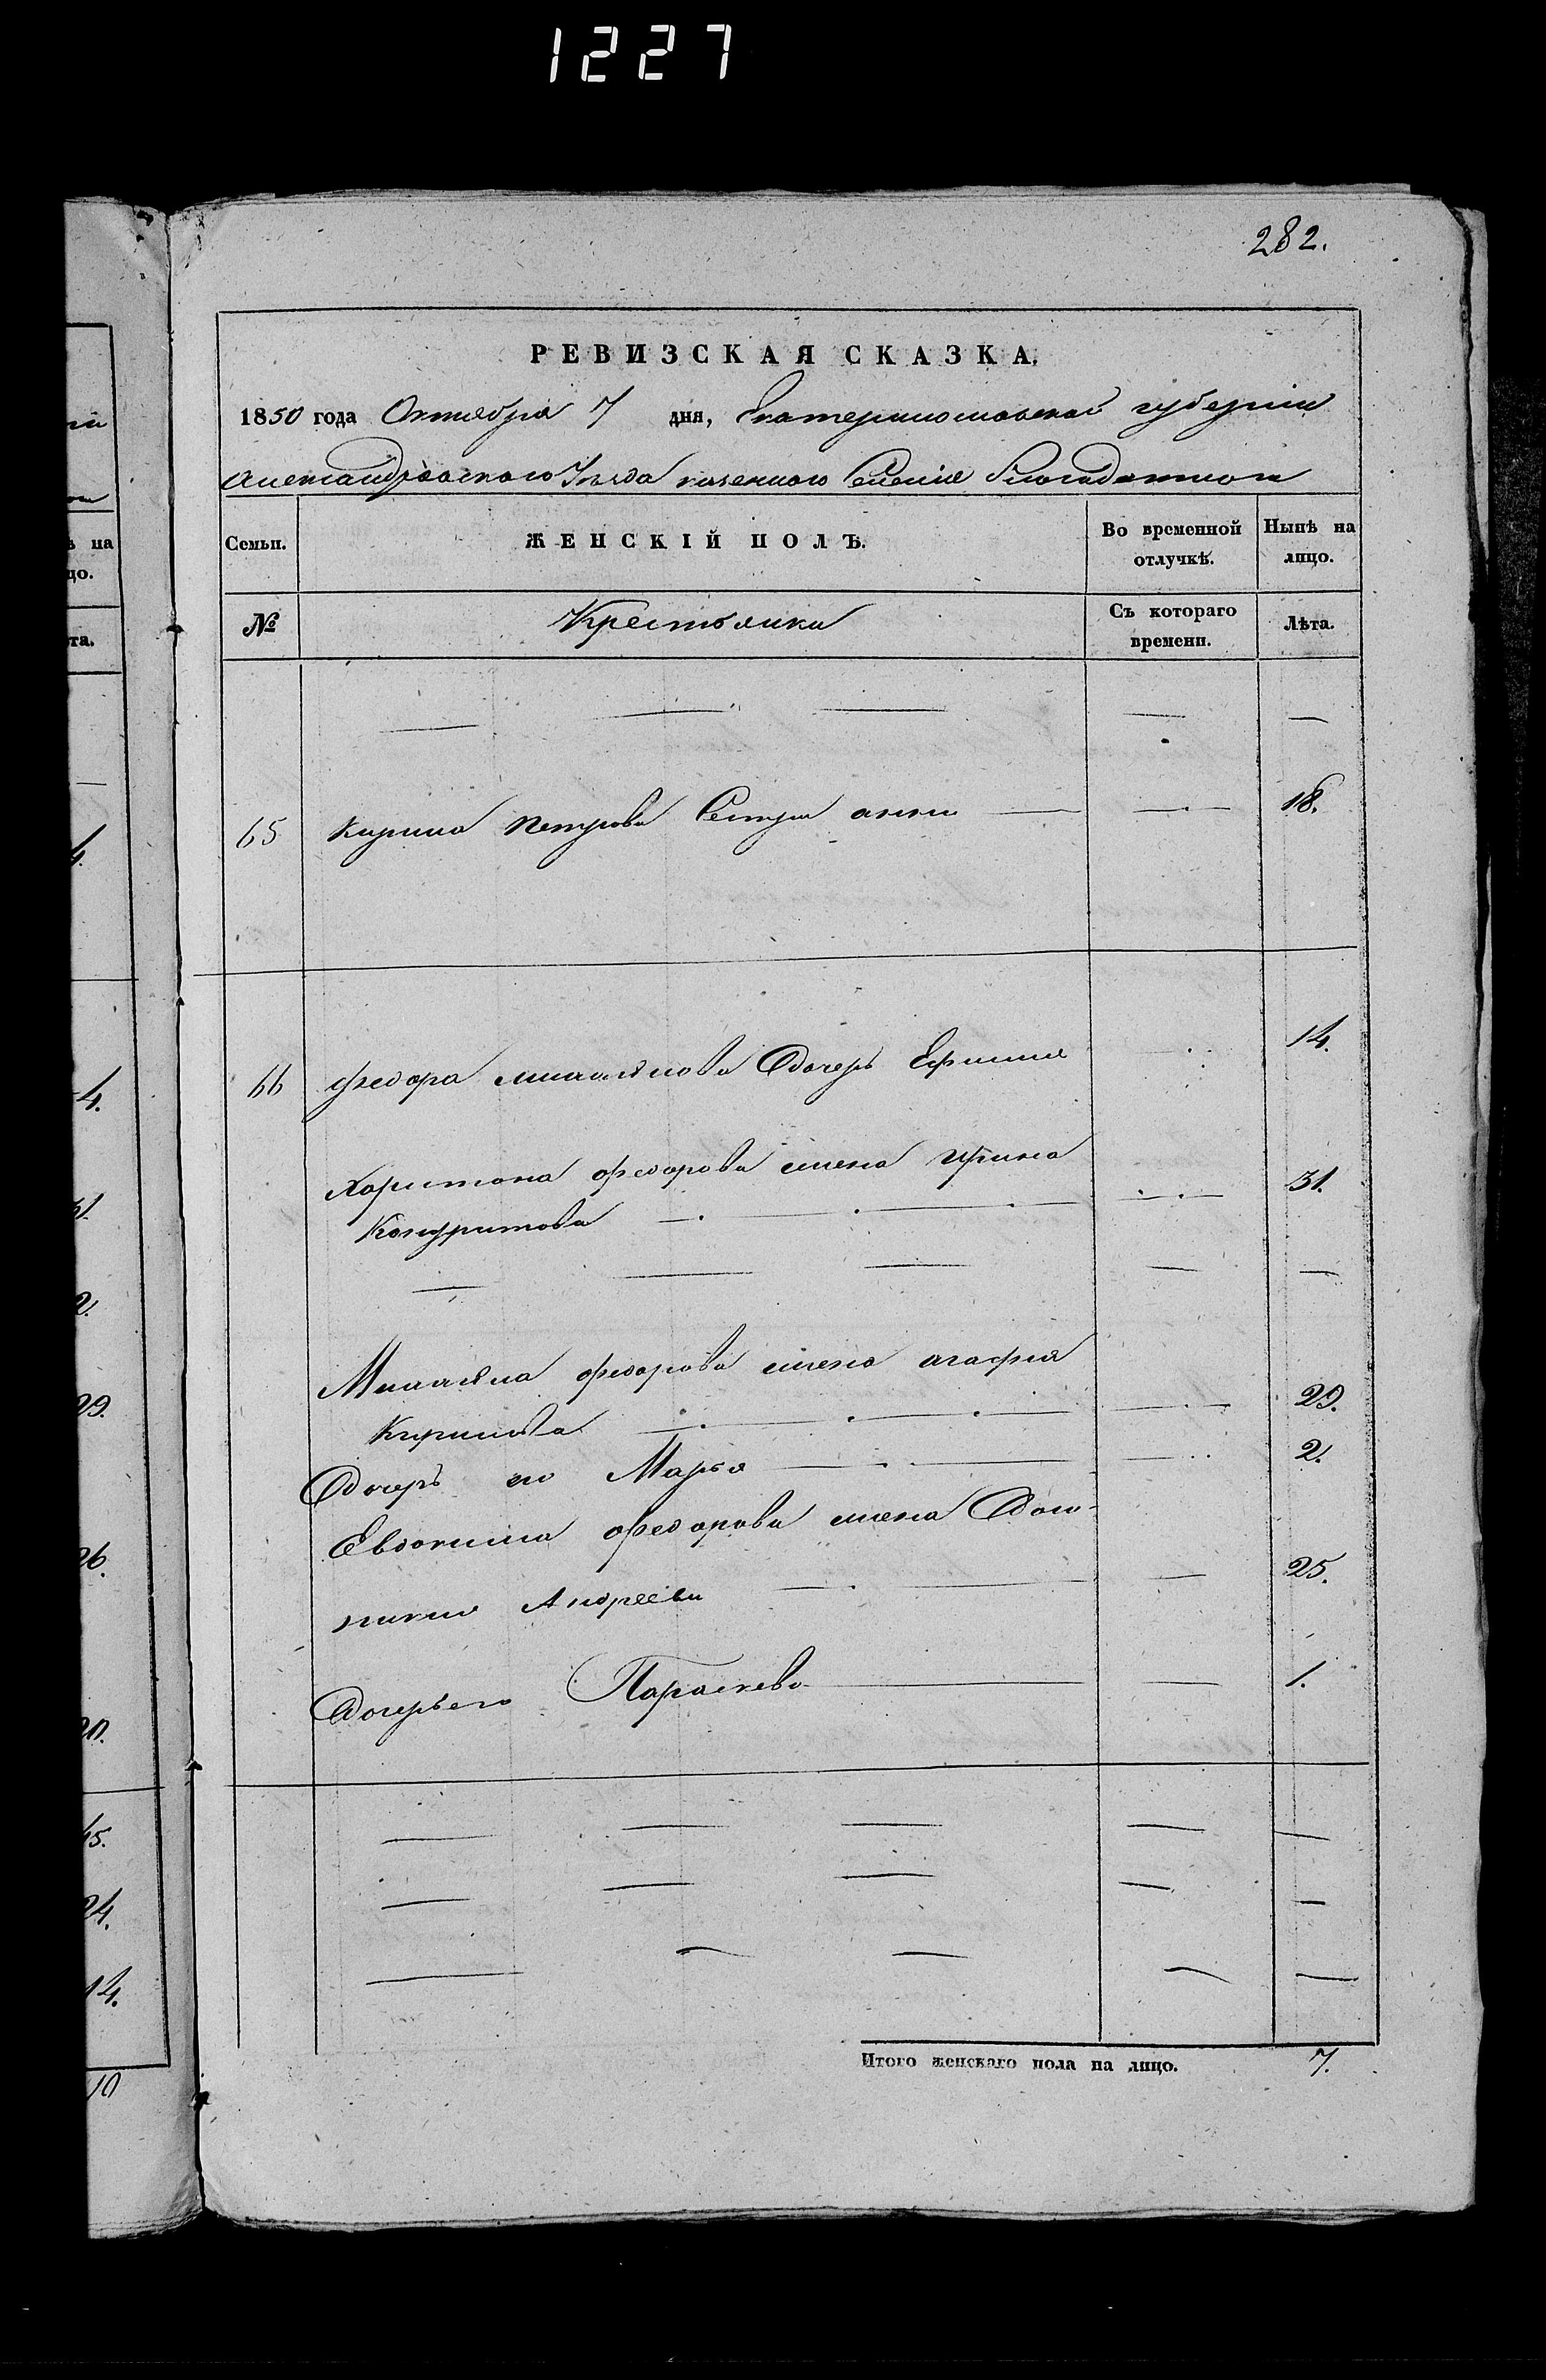 1227
282.
РЕВИЗСКАЯ СКАЗКА.
1850 года Октября 7 дня, Екатеринославской губернии
Александровского Уезда казенного Селения Благодатного
Семьи.
ЖЕНСКІЙ ПОЛЪ.
Во временной отлучкѣ.
Нынѣ на лицо.
№
Крестьянки
Съ котораго времени.
Лѣта.
65 Кирила Петрова Сестра анна 18.
66 федора михайлова Дочерь Ефимия 14.
Харитона федорова жена Ирина
Кондратова 31.
Михайла федорова жена агафия
Кирилова 29.
Дочерь его Марья 2.
Евдокима федорова жена Дом-
никия Андреева 25.
Дочерь его Параскева 1.
Итого женскаго пола на лицо. 7.
ѣ на
цо.
та.
4.
4.
31.
2.
29.
26.
20.
15.
24.
14.
10